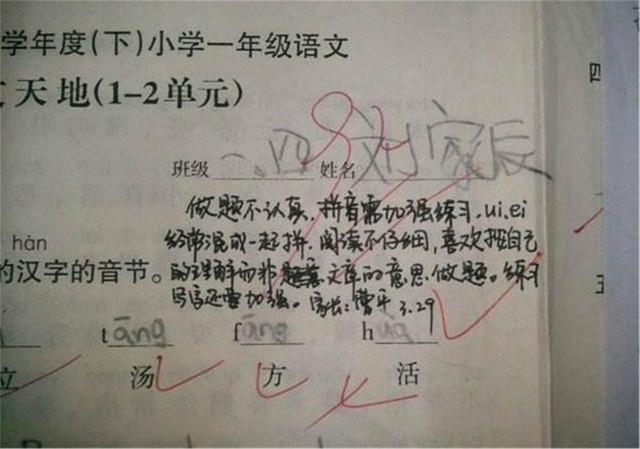 学年度(下)小学一年级语文
天地(1-2单元)
四
班级 一.四 姓名 刘家辰
做题不认真,拼音需加强练习,ui.ei
经常混成一起拼,阅读不仔细,喜欢按自己
的理解而非文章的意思做题。练习
写字还需加强。家长:曹平 3.29
hàn
的汉字的音节。
t āng f āng h
立 汤 方 活